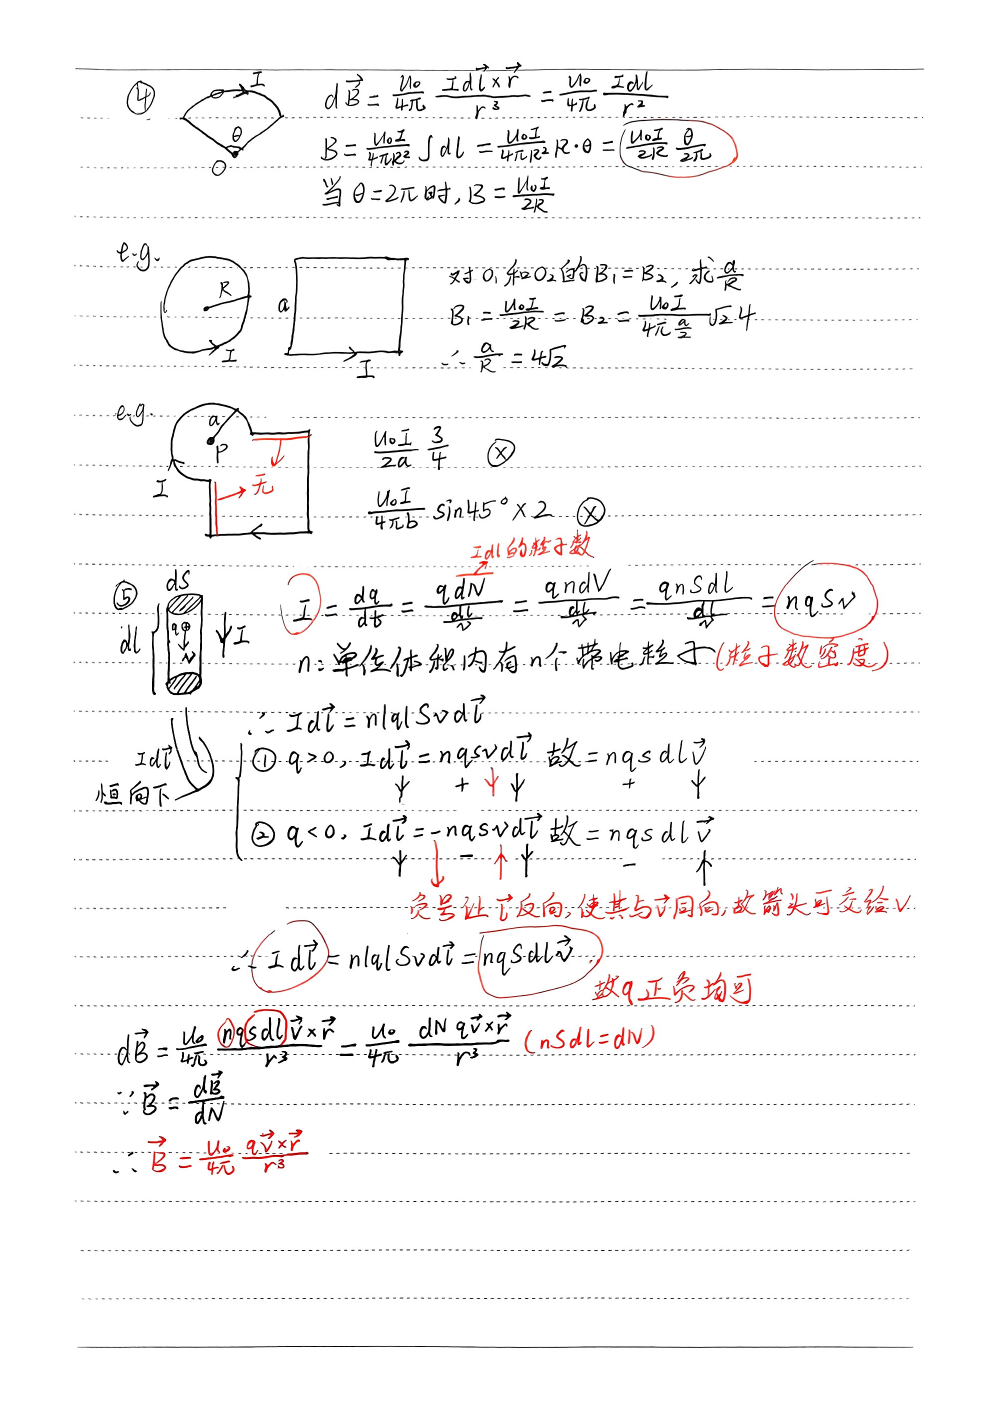 ④ I θ O
dB⃗ = μ₀/4π Idl⃗×r⃗/r³ = μ₀/4π Idl/r²
B = μ₀I/4πR² ∫dl = μ₀I/4πR² R·θ = μ₀I/2R θ/2π
当θ=2π时, B = μ₀I/2R
e.g. R I a I
对O₁和O₂的B₁=B₂, 求a/R
B₁ = μ₀I/2R = B₂ = μ₀I/4π(a/2) √2 4
∴ a/R = 4√2
e.g. a P I 无
μ₀I/2a 3/4 ⓧ
μ₀I/4πb sin45°×2 ⓧ
Idl的粒子数
⑤ dS dl q v I
I = dq/dt = qdN/(dl/v) = qndV/(dl/v) = qnSdl/(dl/v) = nqSv
n: 单位体积内有n个带电粒子(粒子数密度)
∴ Idl⃗ = n|q|Svdl⃗
Idl⃗ 恒向下
① q>0, Idl⃗ = nqsvdl⃗ 故 = nqsdlv⃗
↓ + ↓ ↓ + ↓
② q<0, Idl⃗ = -nqsvdl⃗ 故 = nqsdlv⃗
↓ ↓ - ↑ ↓ - ↑
负号让l⃗反向, 使其与v⃗同向, 故箭头可交给v
∴ Idl⃗ = n|q|Svdl⃗ = nqSdlv⃗.
故q正负均可
dB⃗ = μ₀/4π nqsdlv⃗×r⃗/r³ = μ₀/4π dNqv⃗×r⃗/r³ (nSdl=dN)
∵ B⃗ = dB⃗/dN
∴ B⃗ = μ₀/4π qv⃗×r⃗/r³